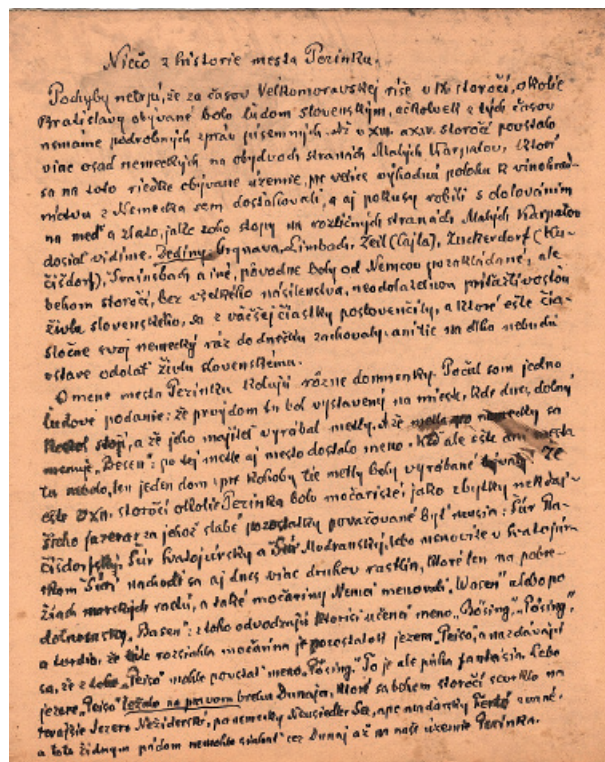 Niečo z historie mesta Pezinku.
Pochyby netrpí, že za časov Velkomoravskej ríše v IX storočí, okolie
Bratislavy obývané bolo ľudom slovenským, ačkoľvek z tých časov
nemáme podrobných zpráv písemných. Až v XIII. a XIV. storočí povstalo
viac osád nemeckých na obydvoch stranách Malých Karpatov, ktorí
sa na toto riedke obývané územie, pre velice výhodnú polohu k vinohrad-
níctvu z Nemecka sem dosťahovali, a aj pokusy robili s dolovaním
na meď a zlato, jakže toho stopy na rozličných stranách Malých Karpatov
dosiaľ vidíme. Dediny Grynava, Limbach, Zeil (Cajla), Zuckersdorf (Ku-
čišdorf), Trainsbach a iné, pôvodne boly od Nemcov pozakládané, ale
behom storočí, bez všetkého násilenstva, neodolateľnou príťažlivosťou
živlu slovenského, sa z väčšej čiastky poslovenčily, a ktoré ešte čia-
stočne svoj nemecký ráz do dnešku zachovaly, ani tie na dlho nebudú
vstave odolať živlu slovenskému.
O mene mesta Pezinku kolujú rôzne domnenky. Počul som jedno
ľudové podanie: že prvý dom tu bol vystavený na mieste, kde dnes dolný
kostol stojí, a že jeho majiteľ vyrábal metly, a že metla po nemecky sa
menuje „Besen": po tej metle aj mesto dostalo meno. Keď ale ešte ani mesta
tu nebolo, len jeden dom, pre kohoby tie metly boly vyrábané bývaly? Že
ešte v XII. storočí okolie Pezinka bolo močaristé, jako zbytky nekdaj-
šieho jazera: za jehož slabé pozostatky považované byť musia: Šúr Ku-
čišdorfský, Šúr Svätojurský a Šúr Modranský, lebo menovite v Svätojur-
skom „Šúri" nachodí sa aj dnes viac druhov rastlín, ktoré len na pobre-
žiach morských rastú, a také močariny Nemci menovali „Wasen" alebo po
dolnorakúsky „Basen": z toho odvodzujú ktorísi učenci meno „Bösing", „Pösing",
a tvrdia, že táto rozsiahla močarina je pozostalosť jazera „Peiso", a nazdávajú
sa, že z toho „Peiso" mohlo povstať meno „Pösing". To je ale púha fantasia, lebo
jazero „Peiso" ležalo na pravom brehu Dunaja, ktoré sa behom storočí scvrklo na
terajšie Jezero Neziderské, po nemecky Neusiedler See, a po maďarsky Fertő zvané,
a toto žiadnym pádom nemohlo siahať cez Dunaj až na naše územie Pezinka.